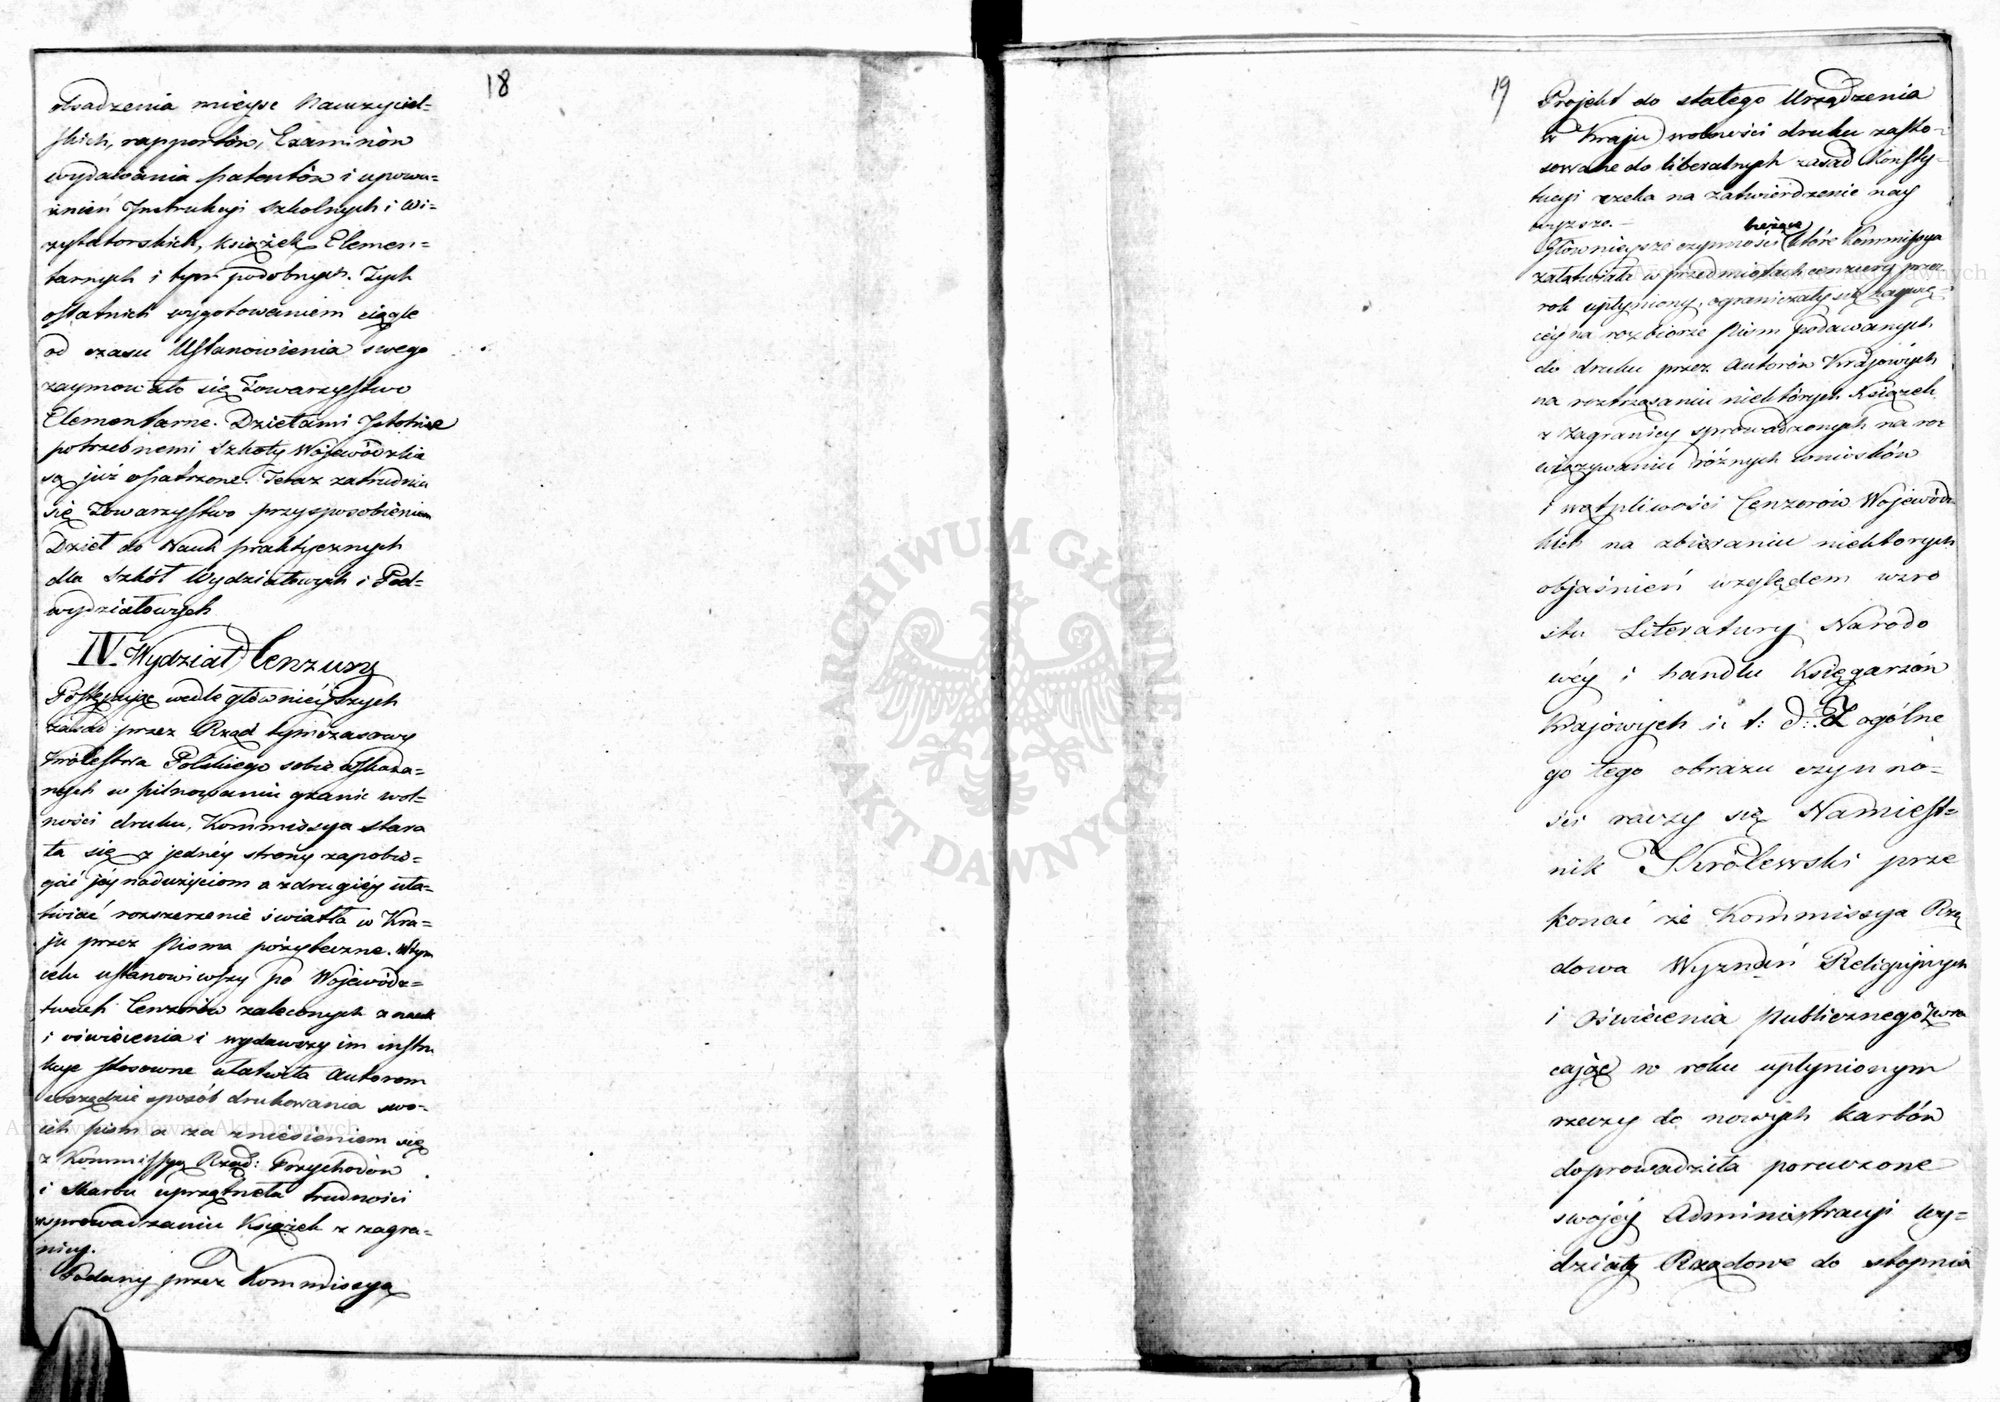 18
obsadzenia mieysc Nauczyciel-
skich, rapportów, Examinów
wydawania patentów i upowa-
żnień Instrukcyi szkolnych i Wi-
zytatorskich, książek Elemen-
tarnych i tym podobnych. Tych
ostatnich wygotowaniem ciągle
od czasu Ustanowienia swego
zaymowało się Towarzystwo
Elementarne. Dziełami Istotnie
potrzebnemi Szkoły Wojewódzkie
są już opatrzone. Teraz zatrudnia
się Towarzystwo przysposobieniem
Dzieł do Nauk praktycznych
dla Szkół Wydziałowych i Pod-
wydziałowych
IV. Wydział Cenzury
Postępując wedle głównieyszych
zasad przez Rząd tymczasowy
Królestwa Polskiego sobie wskaza-
nych w pilnowaniu granic wol-
ności druku, Kommissya stara
ła się z jednéy strony zapobie-
gać jéy nadużyciom a z drugiéy uła-
twiać rozszerzenie światła w Kra-
ju przez Pisma pożyteczne. W tym
celu ustanowiwszy po Wojewódz-
twach Cenzorów zaleconych z nauk
i oświecenia i wydawszy im instru
kcye stosowne ułatwiła Autorom
wszędzie sposób drukowania swo-
ich pism a za zniesieniem się
z Kommissyą Rząd: Przychodów
i Skarbu uprzątnęła trudności
wprowadzaniu Książek z zagra-
nicy.
Podany przez Kommissyą
19
Projekt do stałego Urządzenia
w Kraju wolności druku zasto-
sowane do liberalnych zasad Konsty-
tucyi czeka na zatwierdzenie nay
wyższe.-
bieżące
Głównieysze czynności które Kommissya
załatwiała w przedmiotach cenzury przez
rok upłyniony, ograniczały się naywię-
céy na rozbiorze Pism podawanych
do druku przez Autorów Krajowych
na roztrząsaniu niektórych Książek
z Zagranicy sprowadzonych na roz
wiązywaniu różnych wniosków
i wątpliwości Cenzorów Wojewódz
kich na zbieraniu niektorych
objaśnień względem wzro
stu Literatury Narodo
wéy i handlu Księgarzów
Krajowych i: t: d: Z ogólne
go tego obrazu czynno-
ści raczy się Namiest-
nik Królewski prze
konać że Kommissya Rzą
dowa Wyznań Religijnych
i Oświecenia Publicznego zwra
cając w roku upłynionym
rzeczy do nowych karbów
doprowadziła poruczone
swojéy Administracyi wy-
działy Rządowe do stopnia
ARCHIWUM GŁÓWNE AKT DAWNYCH
Archiwum Główne Akt Dawnych